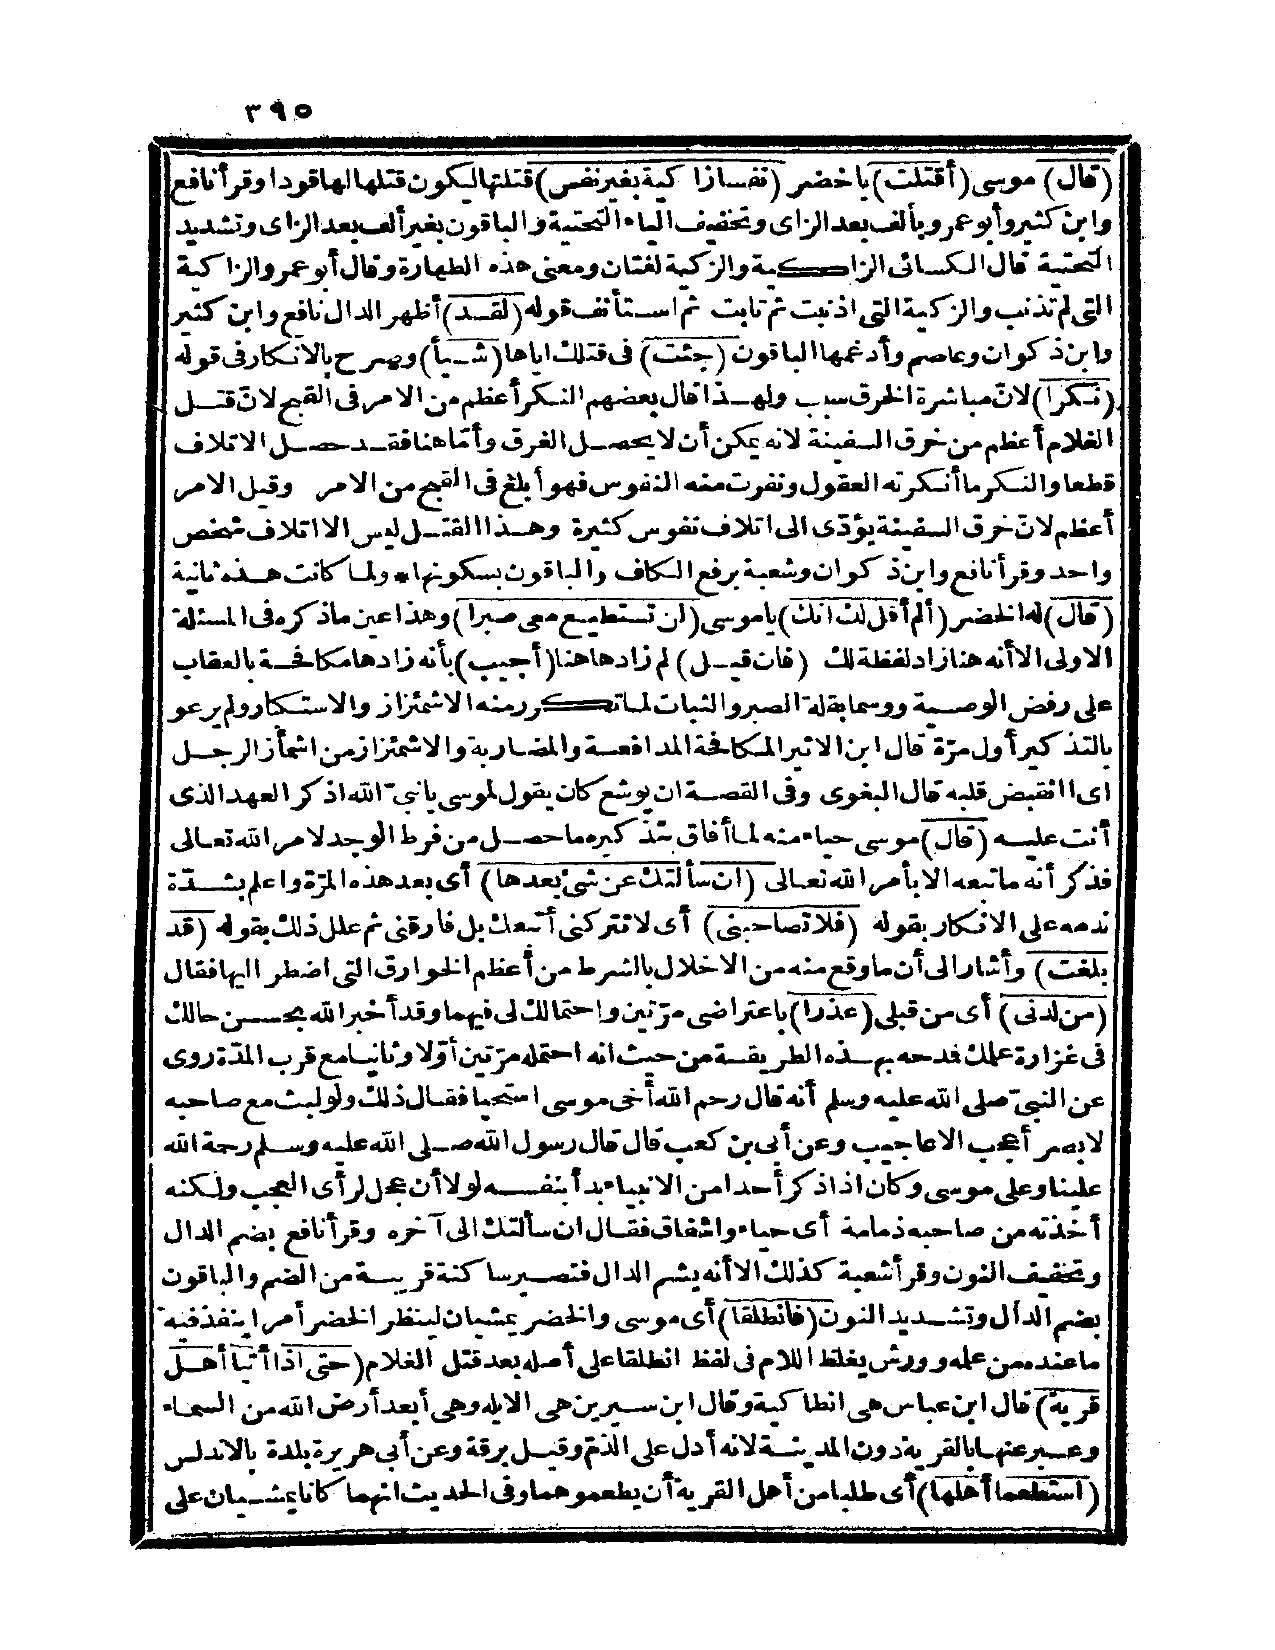 ٣٩٥
(قال) موسى (أقتلت) يا خضر (نفسا زاكية بغير نفس) قتلتها ليكون قتلها لها قودا وقرأ نافع
وابن كثير وأبو عمرو بألف بعد الزاى وتخفيف الياء التحتية والباقون بغير ألف بعد الزاى وتشديد
التحتية قال الكسائى الزاكية والزكية لغتان ومعنى هذه الطهارة وقال أبو عمرو الزاكية
التى لم تذنب والزكية التى اذنبت ثم تابت ثم استأنف قوله (لقد) أظهر الدال نافع وابن كثير
وابن ذكوان وعاصم وأدغمها الباقون (جئت) فى قتلك اياها (شيأ) وصرح بالانكار فى قوله
(نكرا) لانّ مباشرة الخرق سبب ولهذا قال بعضهم النكر أعظم من الامر فى القبح لانّ قتل
الغلام أعظم من خرق السفينة لانه يمكن أن لا يحصل الغرق وأمّا هنا فقد حصل الاتلاف
قطعا والنكر ما أنكرته العقول ونفرت منه النفوس فهو أبلغ فى القبح من الامر وقيل الامر
أعظم لانّ خرق السفينة يؤدّى الى اتلاف نفوس كثيرة وهذا القتل ليس الا اتلاف شخص
واحد وقرأ نافع وابن ذكوان وشعبة برفع الكاف والباقون بسكونها * ولما كانت هذه ثانية
(قال) له الخضر (ألم أقل لك انك) يا موسى (لن تستطيع معى صبرا) وهذا عين ما ذكره فى المسئلة
الاولى الا أنه هنا زاد لفظة لك (فان قيل) لم زادها هنا (أجيب) بأنه زادها مكافحة بالعقاب
على رفض الوصية ووسما بقلة الصبر والثبات لما تكرر منه الاشمئزاز والاستكار ولم يرعو
بالتذكير أول مرّة قال ابن الاثير المكافحة المدافعة والمضاربة والاشمئزاز من اشمأز الرجل
اى انقبض قلبه قال البغوى وفى القصة ان يوشع كان يقول لموسى يا نبىّ الله اذكر العهد الذى
أنت عليه (قال) موسى حياء منه لما أفاق بتذكيره مما حصل من فرط الوجد لامر الله تعالى
فذكر أنه ما تبعه الا بأمر الله تعالى (ان سألتك عن شئ بعدها) أى بعد هذه المرّة واعلم بشدّة
ندمه على الانكار بقوله (فلا تصاحبنى) أى لا تتركنى أتبعك بل فارقنى ثم علل ذلك بقوله (قد
بلغت) وأشار الى أن ما وقع منه من الاخلال بالشرط من أعظم الخوارق التى اضطر اليها فقال
(من لدنى) أى من قبلى (عذرا) باعتراضى مرّتين واحتمالك لى فيهما وقد أخبر الله بحسن حالك
فى غزارة علمك فمدحه بهذه الطريقة من حيث انه احتمله مرّتين أوّلا وثانيا مع قرب المدّة روى
عن النبىّ صلى الله عليه وسلم أنه قال رحم الله أخى موسى استحيا فقال ذلك ولو لبث مع صاحبه
لابصر أعجب الاعاجيب وعن أبىّ بن كعب قال قال رسول الله صلى الله عليه وسلم رحمة الله
علينا وعلى موسى وكان اذا ذكر أحدا من الانبياء بدأ بنفسه لولا أن عجل لرأى العجب ولكنه
أخذته من صاحبه ذمامة أى حياء واشفاق فقال ان سألتك الى آخره وقرأ نافع بضم الدال
وتخفيف النون وقرأ شعبة كذلك الا أنه يشم الدال فتصير ساكنة قريبة من الضم والباقون
بضم الدال وتشديد النون (فانطلقا) أى موسى والخضر يمشيان لينظر الخضر أمرا ينفذ فيه
ما عنده من علمه وورش يغلظ اللام فى لفظ انطلقا على أصله بعد قتل الغلام (حتى اذا أتيا أهل
قرية) قال ابن عباس هى انطاكية وقال ابن سيرين هى الايلة وهى أبعد أرض الله من السماء
وعبر عنها بالقرية دون المدينة لانه أدل على الذمّ وقيل برقة وعن أبى هريرة بلدة بالاندلس
(استطعما أهلها) أى طلبا من أهل القرية أن يطعموهما وفى الحديث انهما كانا يمشيان على